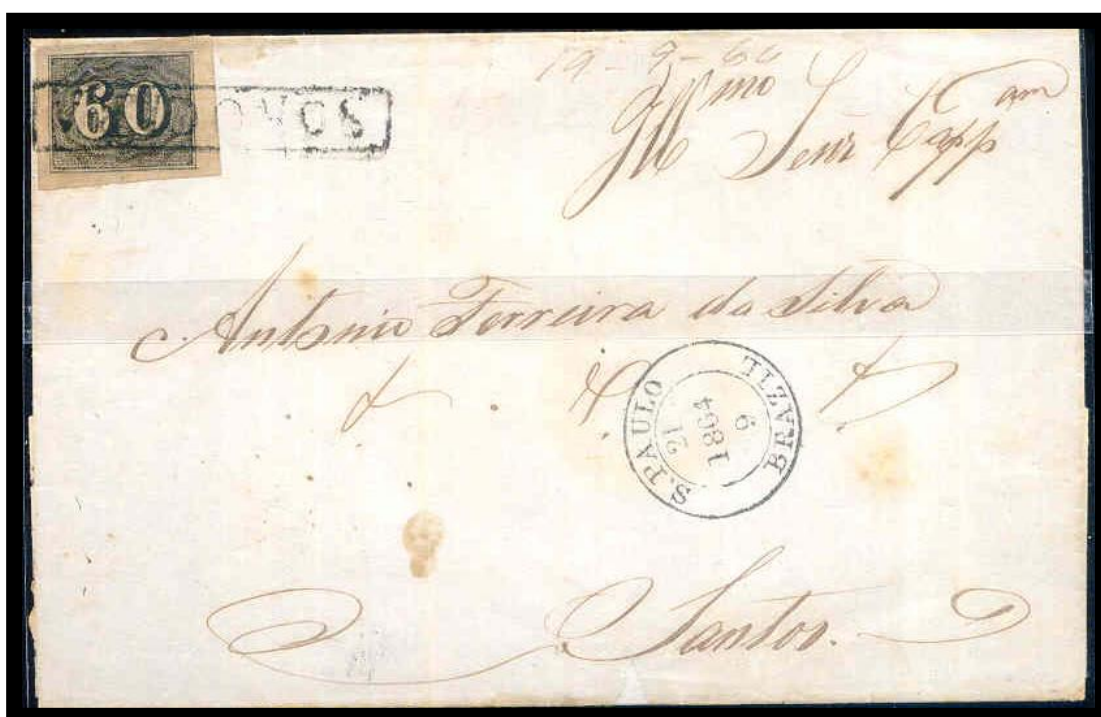 60
19 - 9 - 64
Illmo Senr Cappam
Antonio Ferreira da Silva
S. PAULO
BRAZIL
21
9
1864
Santos.